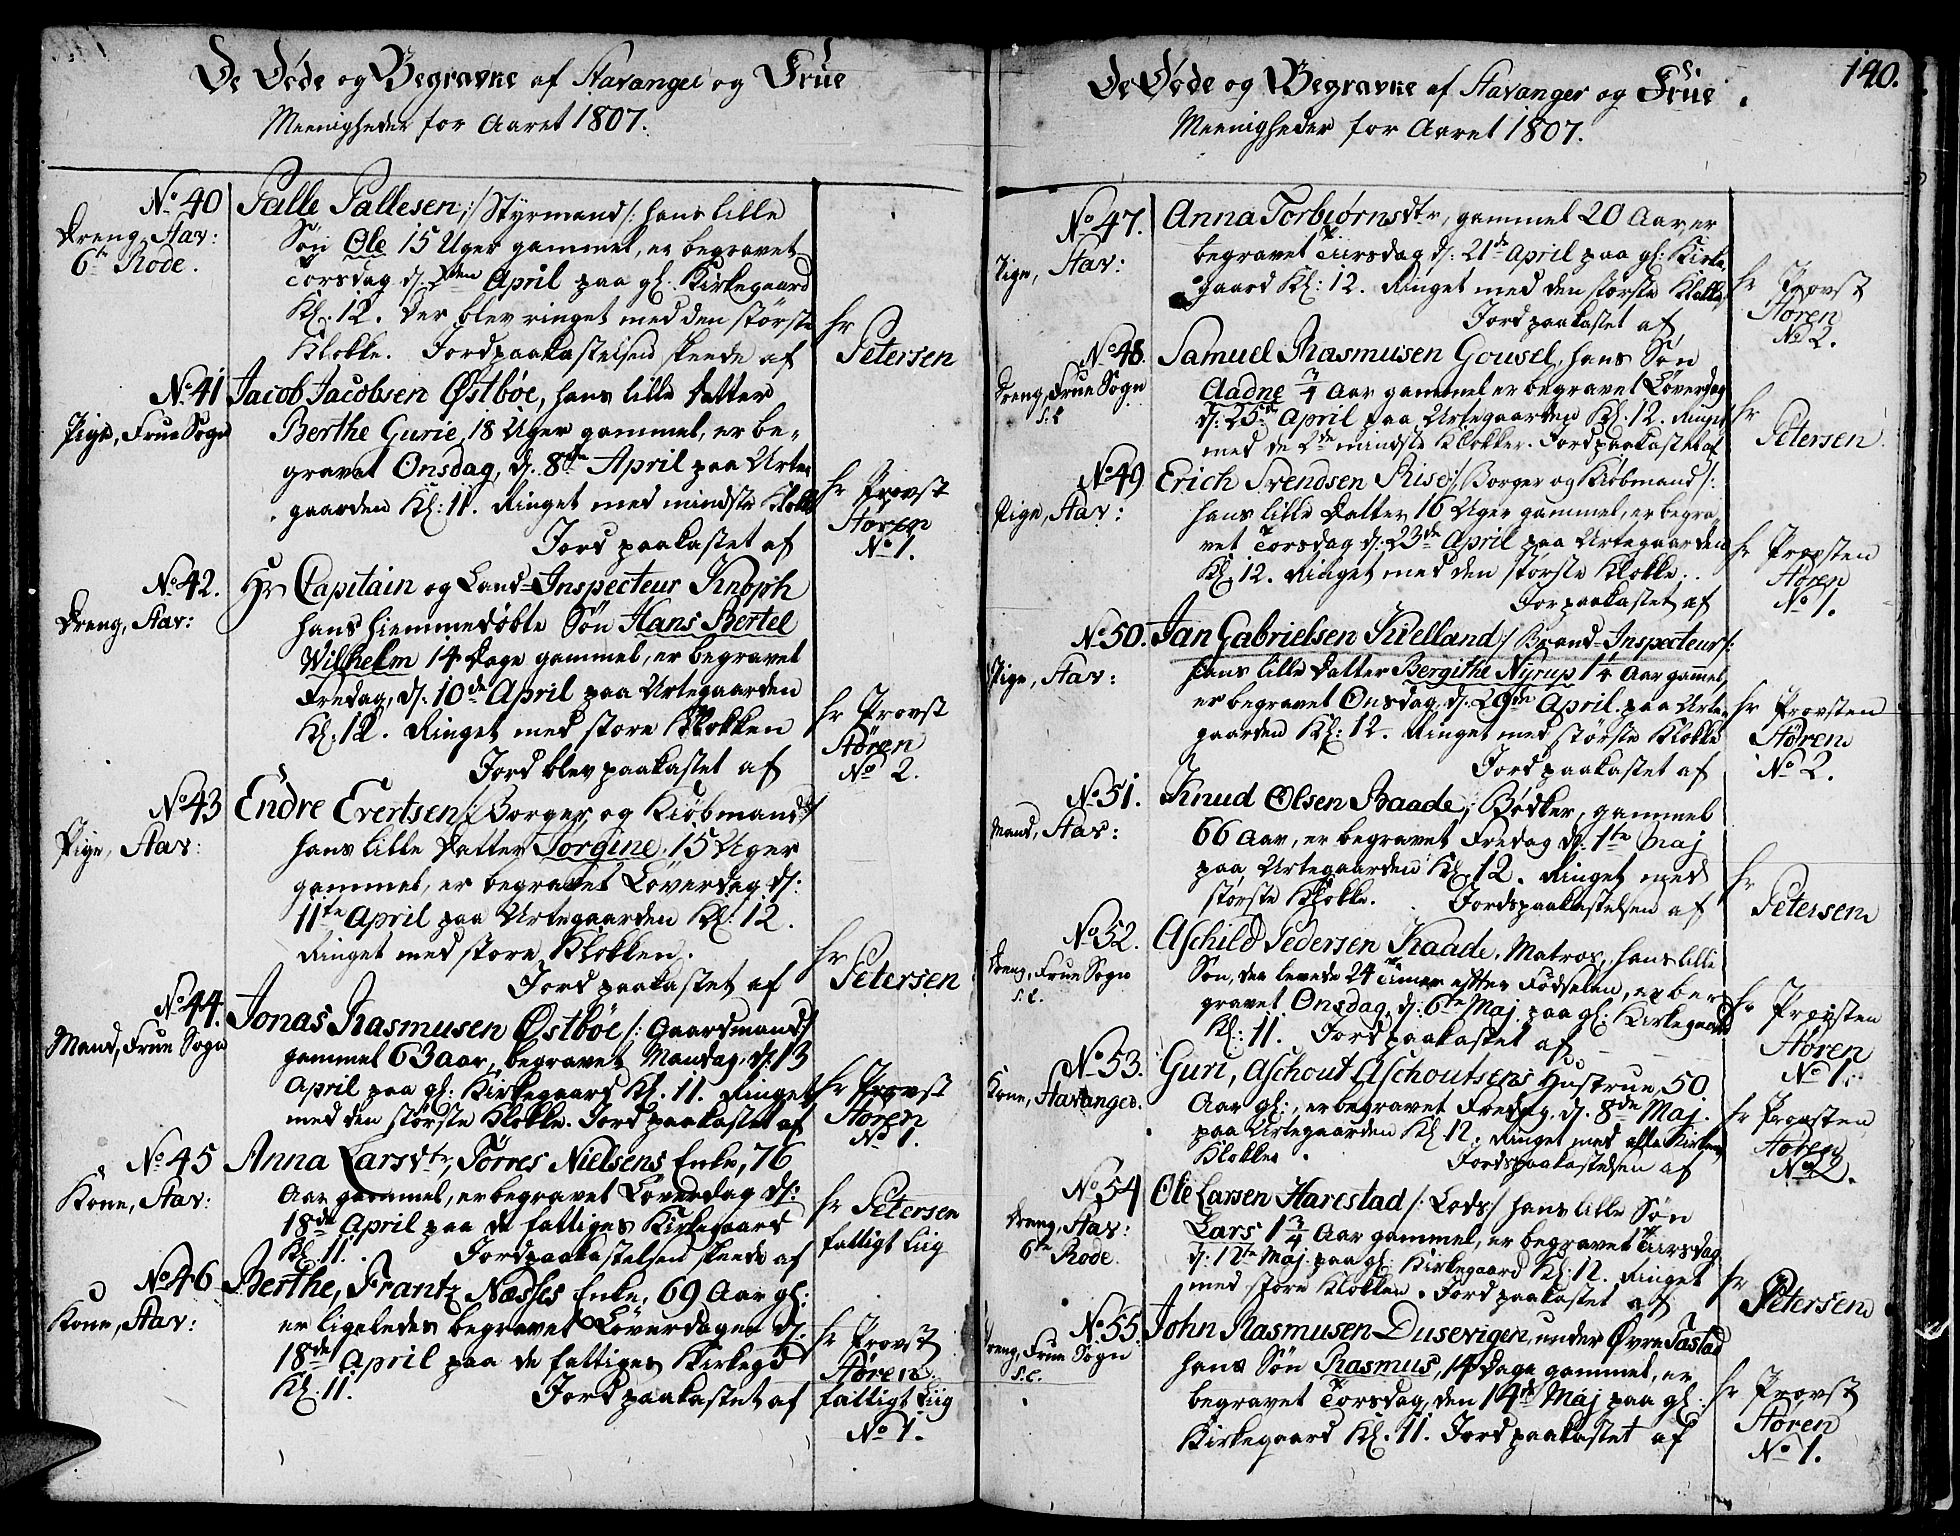 De Døde og Begravne af Stavanger og Frue
Meenigheder for Aaret 1807.
No 40
Dreng, Stav:
6te Rode.
Palle Pallesen, /: Styrmand :/ hans lille
Søn Ole 15 Uger gammel, er begravet
Torsdag d: 2den April paa gl. Kirkegaard
Kl: 12. Der blev ringet med den største
Klokke. Jordpaakastelsen skeede af
hr
Petersen
No 41
Pige, Frue Sogn
Jacob Jacobsen Østbøe, hans lille Datter
Berthe Gurie, 18 Uger gammel, er be-
gravet Onsdag, d. 8de April paa Urte
gaarden Kl: 11. Ringet med mindste Klokke
Jord paakastet af
hr Provst
Støren
No 1.
No 42.
Dreng, Stav:
Hr Capitain og Land-Inspecteur Knoph
hans hiemmedøbte Søn Hans Bertel
Wilhelm 14 Dage gammel, er begravet
Fredag, d. 10de April paa Urtegaarden
Kl. 12. Ringet med store Klokken
Jord blev paakastet af
hr Provst
Støren
No 2.
No 43
Pige, Stav:
Endre Evertsen /: Borger og Kiøbmand :/
hans lille Datter Jorgine, 15 Uger
gammel, er begravet Løverdag d:
11te April paa Urtegaarden Kl: 12.
Ringet med store Klokken.
Jord paakastet af
hr
Petersen
No 44.
Mand, Frue Sogn
Jonas Rasmusen Østbøe /: Gaardmand :/
gammel 63 aar, begravet Mandag, d: 13
April paa gl: Kirkegaard Kl. 11. Ringet
med den største Klokke. Jord paakastet af
hr Provst
Støren
No 1.
No 45
Kone, Stav:
Anna Larsdtr, Torres Nielsens Enke, 76
Aar gammel, er begravet Løverdag d:
18de April paa de fattiges Kirkegaard
Kl. 11. Jordpaakastelsen skeede af
hr Petersen
fattigt Liig
No 46
Kone, Stav:
Berthe, Frantz Næsses Enke, 69 Aar gl:
er ligeledes begravet Løverdagen d.
18de April paa de fattiges Kirkegd
Kl: 11. Jord paakastet af
hr Provst
Støren
fattigt Liig
No 1.
De Døde og Begravne af Stavanger og Frue
140.
Meenigheder for Aaret 1807.
No 47.
Pige, Stav:
Anna Torbiørnsdtr, gammel 20 Aar, er
begravet Tirsdag d: 21de April paa gl: Kirke
gaard Kl: 12. Ringet med den største Klokke,
Jord paakastet af
hr Provst
Støren
No 2.
No 48.
Dreng, Frue Sogn
Samuel Rasmusen Gousel, hans Søn
Aadne 3/4 Aar gammel er begravet Løverdag
d: 25de April paa Urtegaarden Kl. 12. Ringet
med de 2de mindste Klokker. Jord paakastet af
hr
Petersen
No 49
Pige, Stav:
Erich Svendsen Riise /: Borger og Kiøbmand :/
hans lille Datter 16 Uger gammel, er begra-
vet Torsdag d: 23de April paa Urtegaarden
Kl. 12. Ringet med den største Klokke.
Jor paakastet af
hr Provsten
Støren
No 1.
No 50.
Pige, Stav:
Jan Gabrielsen Kielland /: Brand-Inspecteur :/
hans lille Datter Bergithe Nyrup 1 1/4 Aar gammel,
er begravet Onsdag, d. 29de April paa Urte
gaarden Kl: 12. Ringet med største Klokke
Jord paakastet af
hr Provsten
Støren
No 2.
No 51.
Mand, Stav:
Knud Olsen Raade, Bødker, gammel
66 Aar, er begravet Fredag d. 1te Maj
paa Urtegaarden Kl. 12. Ringet med
største Klokke. Jordspaakastelsen af
hr
Petersen
No 52.
Dreng, Frue Sogn
Aschild Pedersen Kaade, Matros, hans lille
Søn, der levede 24 Timer efter Fødselen, er be
gravet Onsdag, d: 6te Maj paa gl: Kirkegaard
Kl: 11. Jord paakastet af
hr Provsten
Støren
No 1.
No 53.
Kone, Stavanger.
Guri, Aschout Aschoutsens Hustrue, 50
Aar gl:, er begravet Fredag d. 8de Maj.
paa Urtegaarden Kl. 12. Ringet med alle Kirkens
Klokker. Jordspaakastelsen af
hr Provsten
Støren
No 2.
No 54
Dreng, Stav:
6te Rode.
Ole Larsen Harestad /: Lods :/ hans lille Søn
Lars 1 3/4 Aar gammel, er begravet Tirsdag
d. 12te Maj paa gl: Kirkegaard Kl: 12. Ringet
med store Klokken. Jord paakastet af
hr
Petersen
No 55.
Dreng, Frue Sogn
John Rasmusen Dusevigen, under Øvre Tastad
hans Søn Rasmus, 14 Dage gammel, er
begravet Torsdag, den 14de Maj paa gl:
Kirkegaard Kl. 11. Jord paakastet af
hr Provst
Støren
No 1.